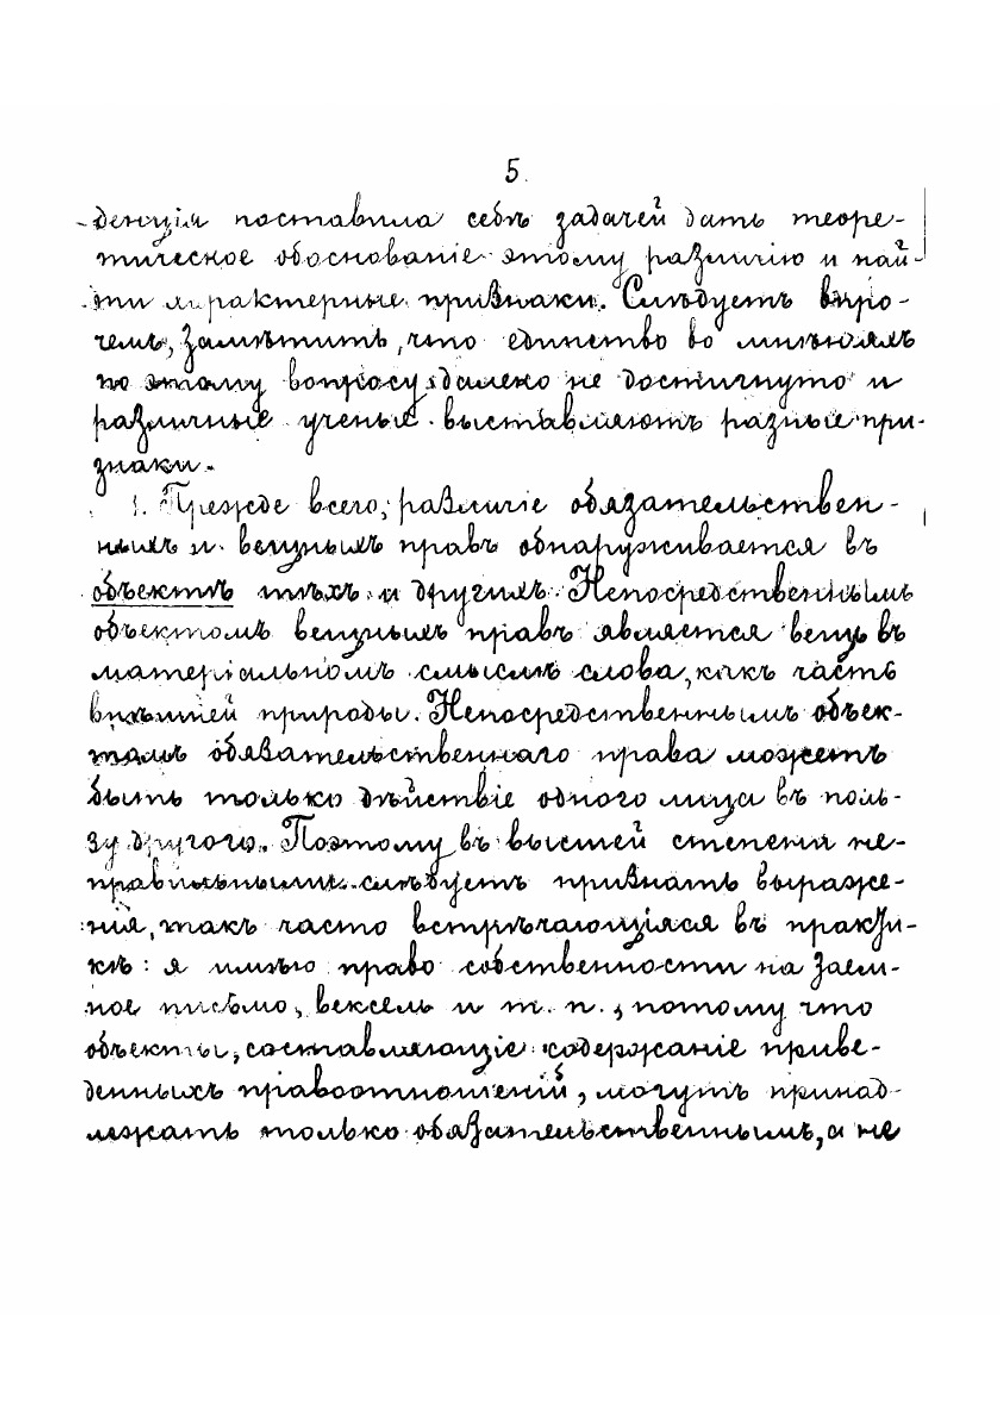 5.
-денція поставила себѣ задачей дать теоре-
тическое обоснованіе этому различію и най-
ти характерные признаки. Слѣдуетъ впро-
чемъ, замѣтить, что единство во мнѣніяхъ
по этому вопросу далеко не достигнуто и
различные ученые выставляютъ разные при-
знаки.
1. Прежде всего, различіе обязательствен-
ныхъ и вещныхъ правъ обнаруживается въ
объектѣ тѣхъ и другихъ. Непосредственнымъ
объектомъ вещныхъ правъ является вещь въ
матеріальномъ смыслѣ слова, какъ часть
внѣшней природы. Непосредственнымъ объек-
томъ обязательственнаго права можетъ
быть только дѣйствіе одного лица въ поль-
зу другого. Поэтому въ высшей степени не-
правильными слѣдуетъ признать выраже-
нія, такъ часто встрѣчающіяся въ практи-
кѣ: я имѣю право собственности на заем-
ное письмо, вексель и т. п., потому что
объекты, составляющіе содержаніе приве-
денныхъ правоотношеній, могутъ принад-
лежать только обязательственнымъ, а не